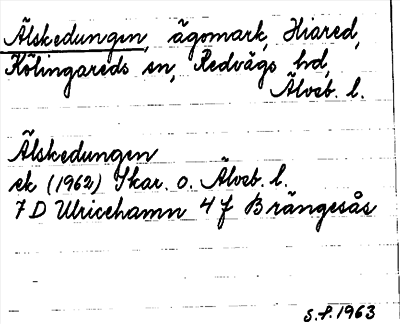 Älskedungen, ägomark, Hiared,
Kölingareds sn, Redvägs hd,
Älvsb. l.
Älskedungen
ek (1962) Skar. o. Älvsb. l.
7 D Ulricehamn 4 f Brängesås
S.P. 1963